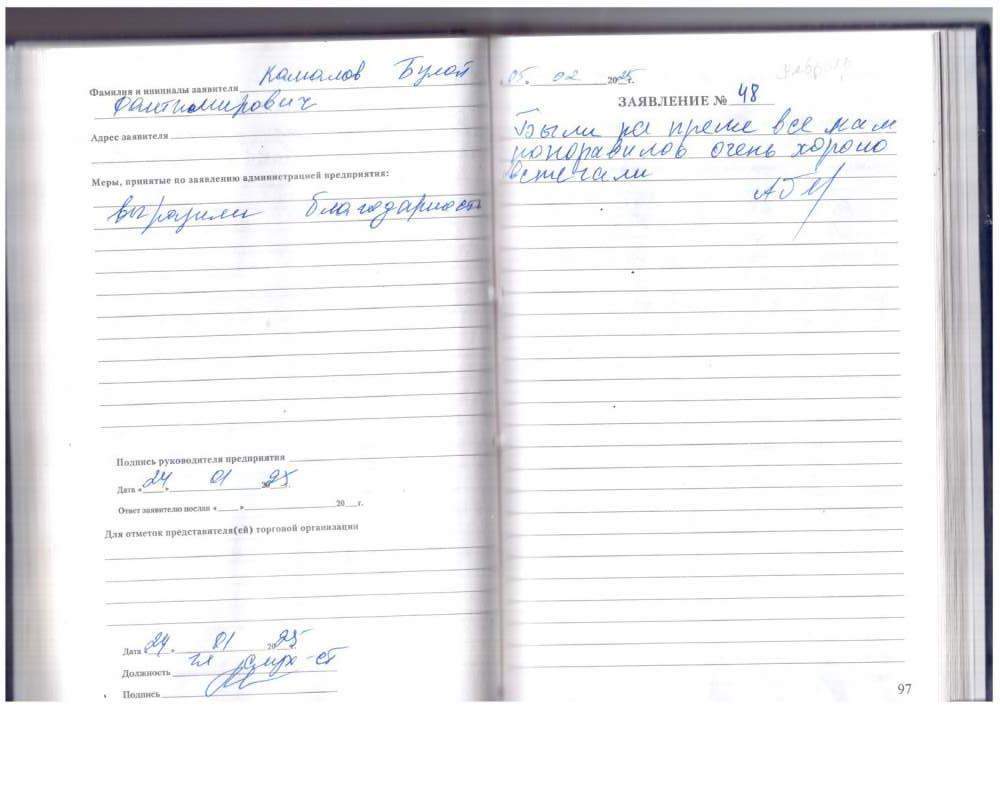 Фамилия и инициалы заявителя Камалов Булат
Фантимирович
Адрес заявителя
Меры, принятые по заявлению администрацией предприятия:
выразили благодарность
Подпись руководителя предприятия
Дата « 24 » 01 2025 г.
Ответ заявителю послан « » 20 г.
Для отметок представителя(ей) торговой организации
Дата « 24 » 01 2025 г.
Должность гл
Подпись
05. 02 2025 г.
ЗАЯВЛЕНИЕ № 48
Были на все нам
понравилов очень хорошо
97